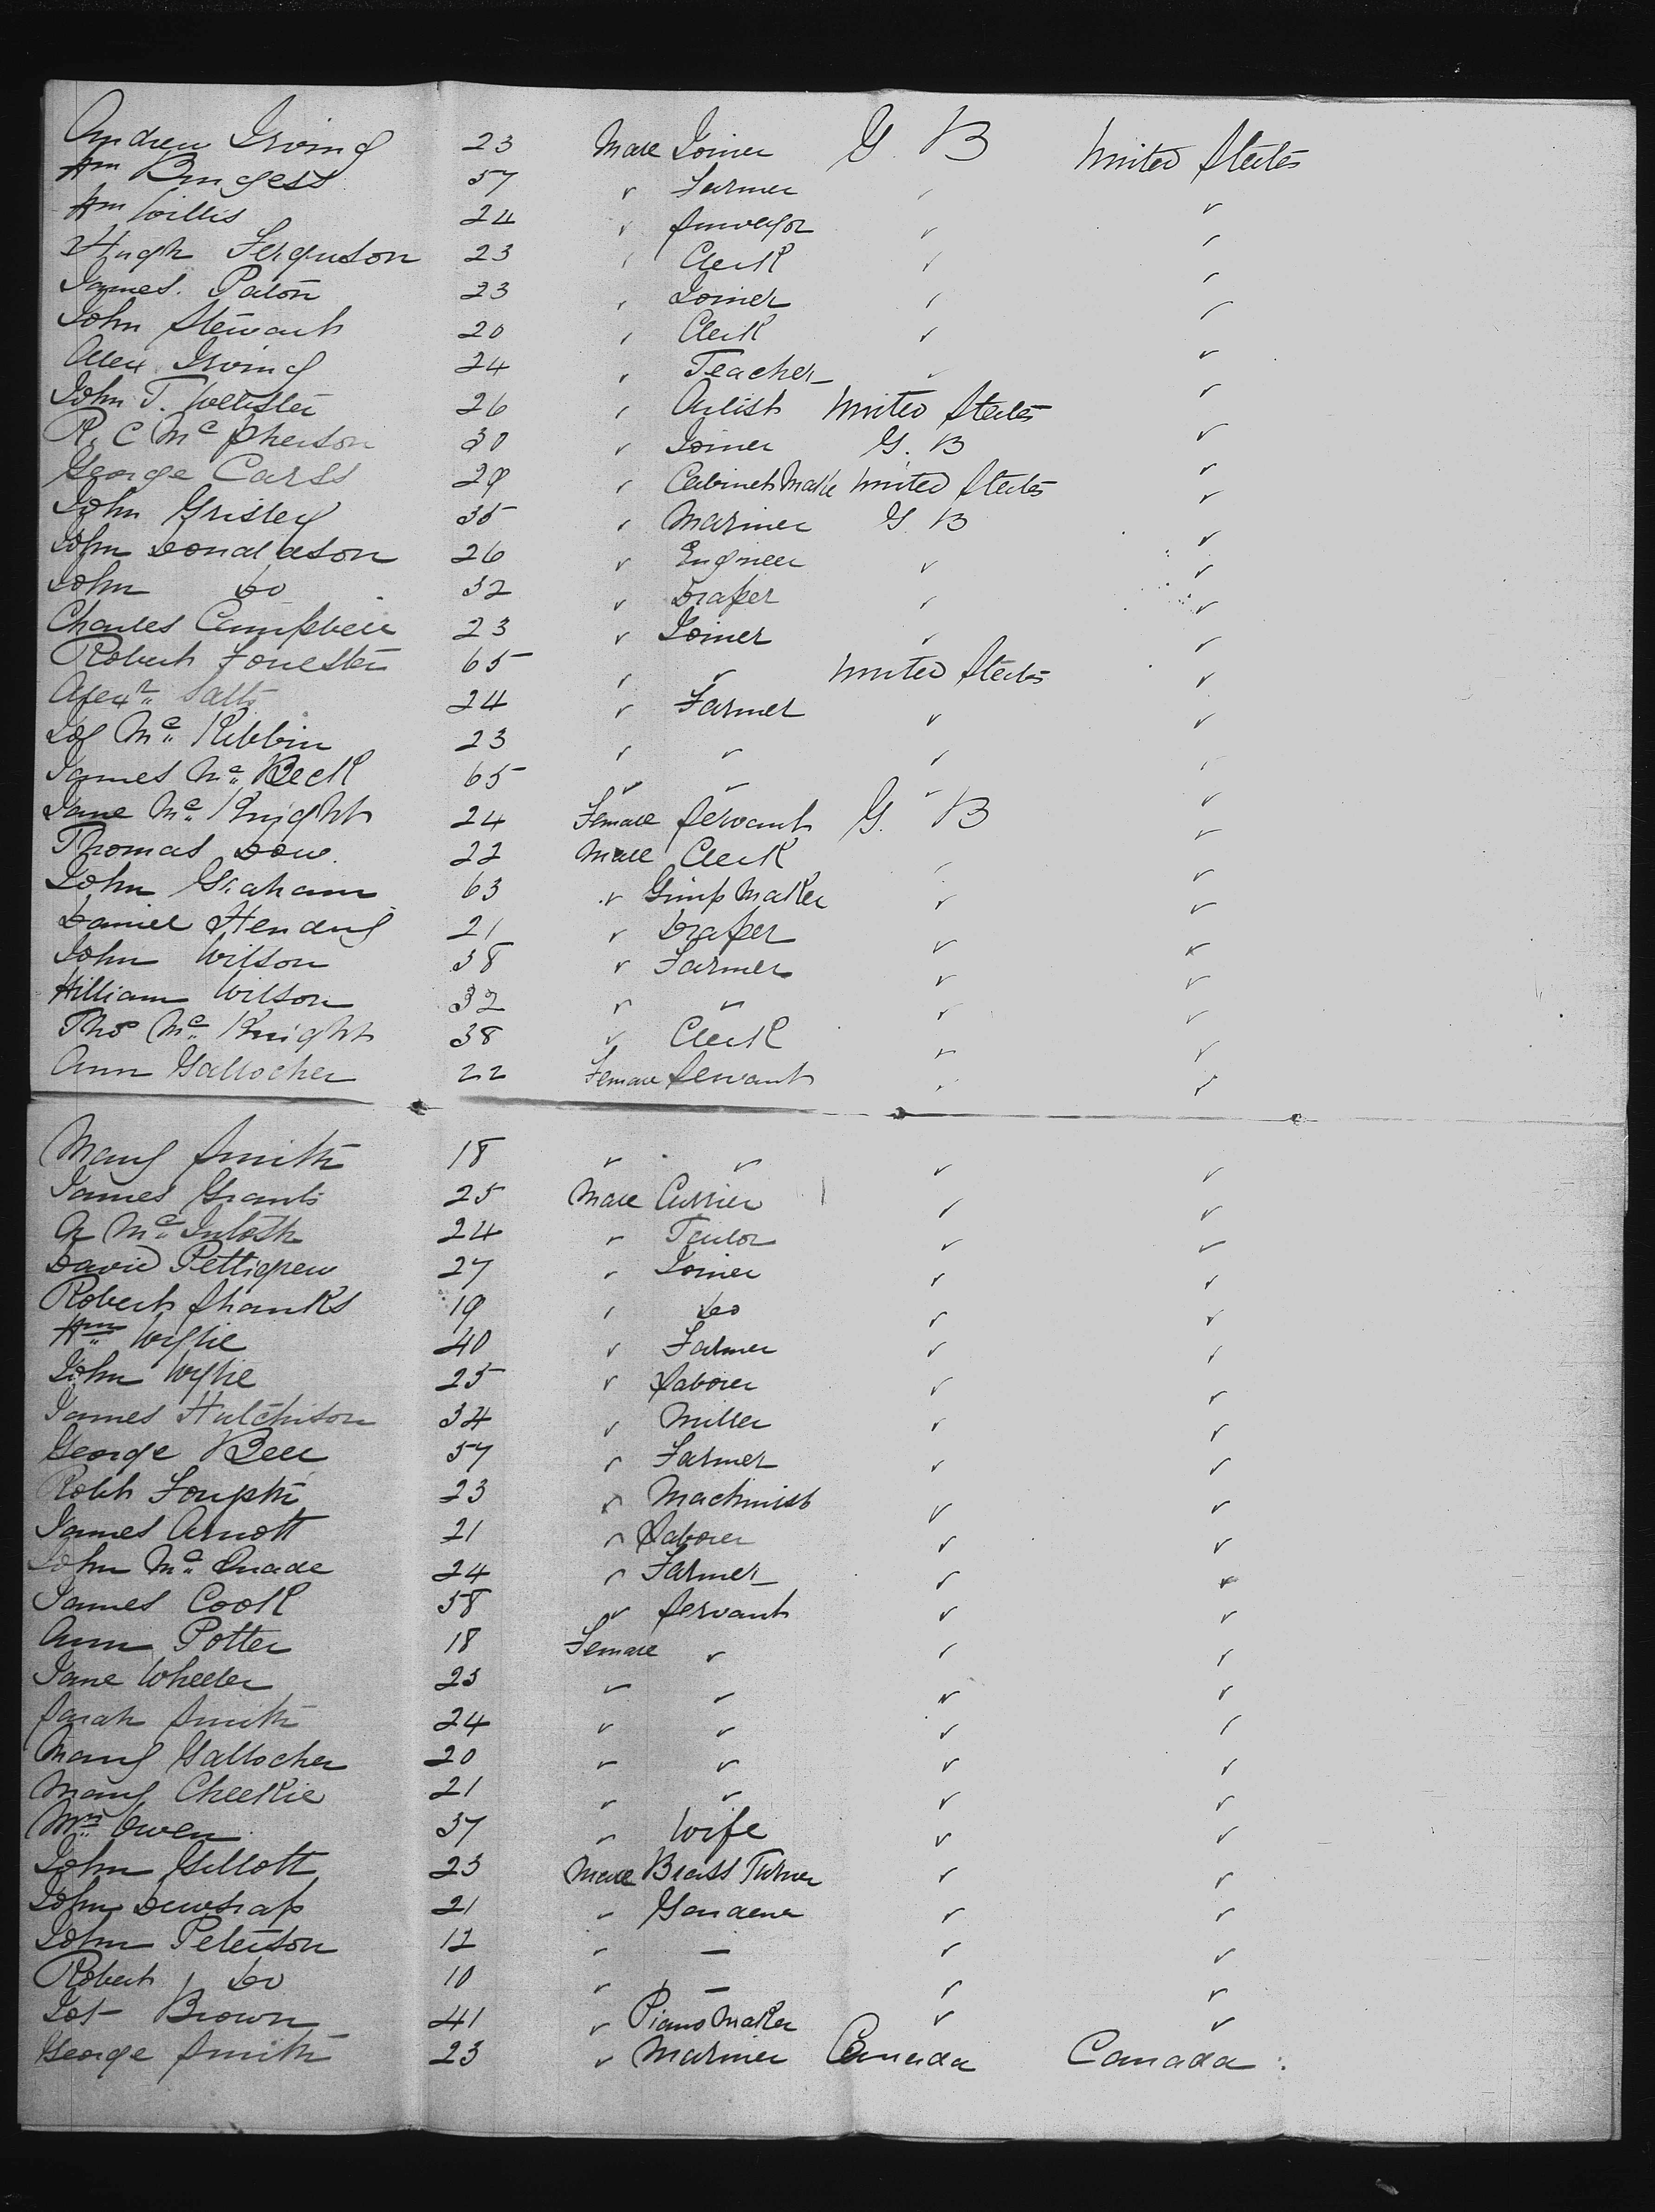 Andrew Irving 23 Male Joiner G. B United States
Wm Burgess 57 " Farmer " "
Wm Willis 24 " Surveyor " "
Hugh Ferguson 23 " Clerk " "
James Paton 23 " Joiner " "
John Stewart 20 " Clerk " "
Alex Irving 24 " Teacher " "
John T. Webster 26 " Artist United States "
R. C McPherson 30 " Joiner G. B "
George Carss 29 " Cabinet Make United States "
John Grisley 35 " Mariner G. B "
John Donaldson 26 " Engineer " "
John Do 32 " Draper " "
Charles Campbell 23 " Joiner " "
Robert Forrester 65 " " United States "
Alexr Salts 24 " Farmer " "
Jos Mc Kibbin 23 " " " "
James Mc Beck 65 " " " "
Jane Mc Knight 24 Female Servant G. B "
Thomas Dow 22 Male Clerk " "
John Graham 63 " Gimp Maker " "
Daniel Hendry 21 " Draper " "
John Wilson 38 " Farmer " "
William Wilson 32 " " " "
Thos Mc Knight 38 " Clerk " "
Ann Gallocher 22 Female Servant " "
Mary Smith 18 " " " "
James Grant 25 Male Currier " "
A McIntosh 24 " Tailor " "
David Pettigrew 27 " Joiner " "
Robert Shanks 19 " Do " "
Wm Wylie 40 " Farmer " "
John Wylie 25 " Laborer " "
James Hutchison 34 " Miller " "
George Bell 57 " Farmer " "
Robt 23 " Machinist " "
James Arnott 21 " Laborer " "
John Mc Quade 24 " Farmer " "
James Cook 58 " Servant " "
Ann Potter 18 Female " " "
Jane Wheeler 25 " " " "
Sarah Smith 24 " " " "
Mary Gallocher 20 " " " "
Mary Cheekie 21 " " " "
Mrs Owen 37 " Wife " "
John Gillott 23 Male Brass Turner " "
John Dewsnap 21 " Gardener " "
John Peterson 12 " — " "
Robert Do 10 " — " "
Jos Brown 41 " Piano Maker " "
George Smith 23 " Mariner Canada Canada